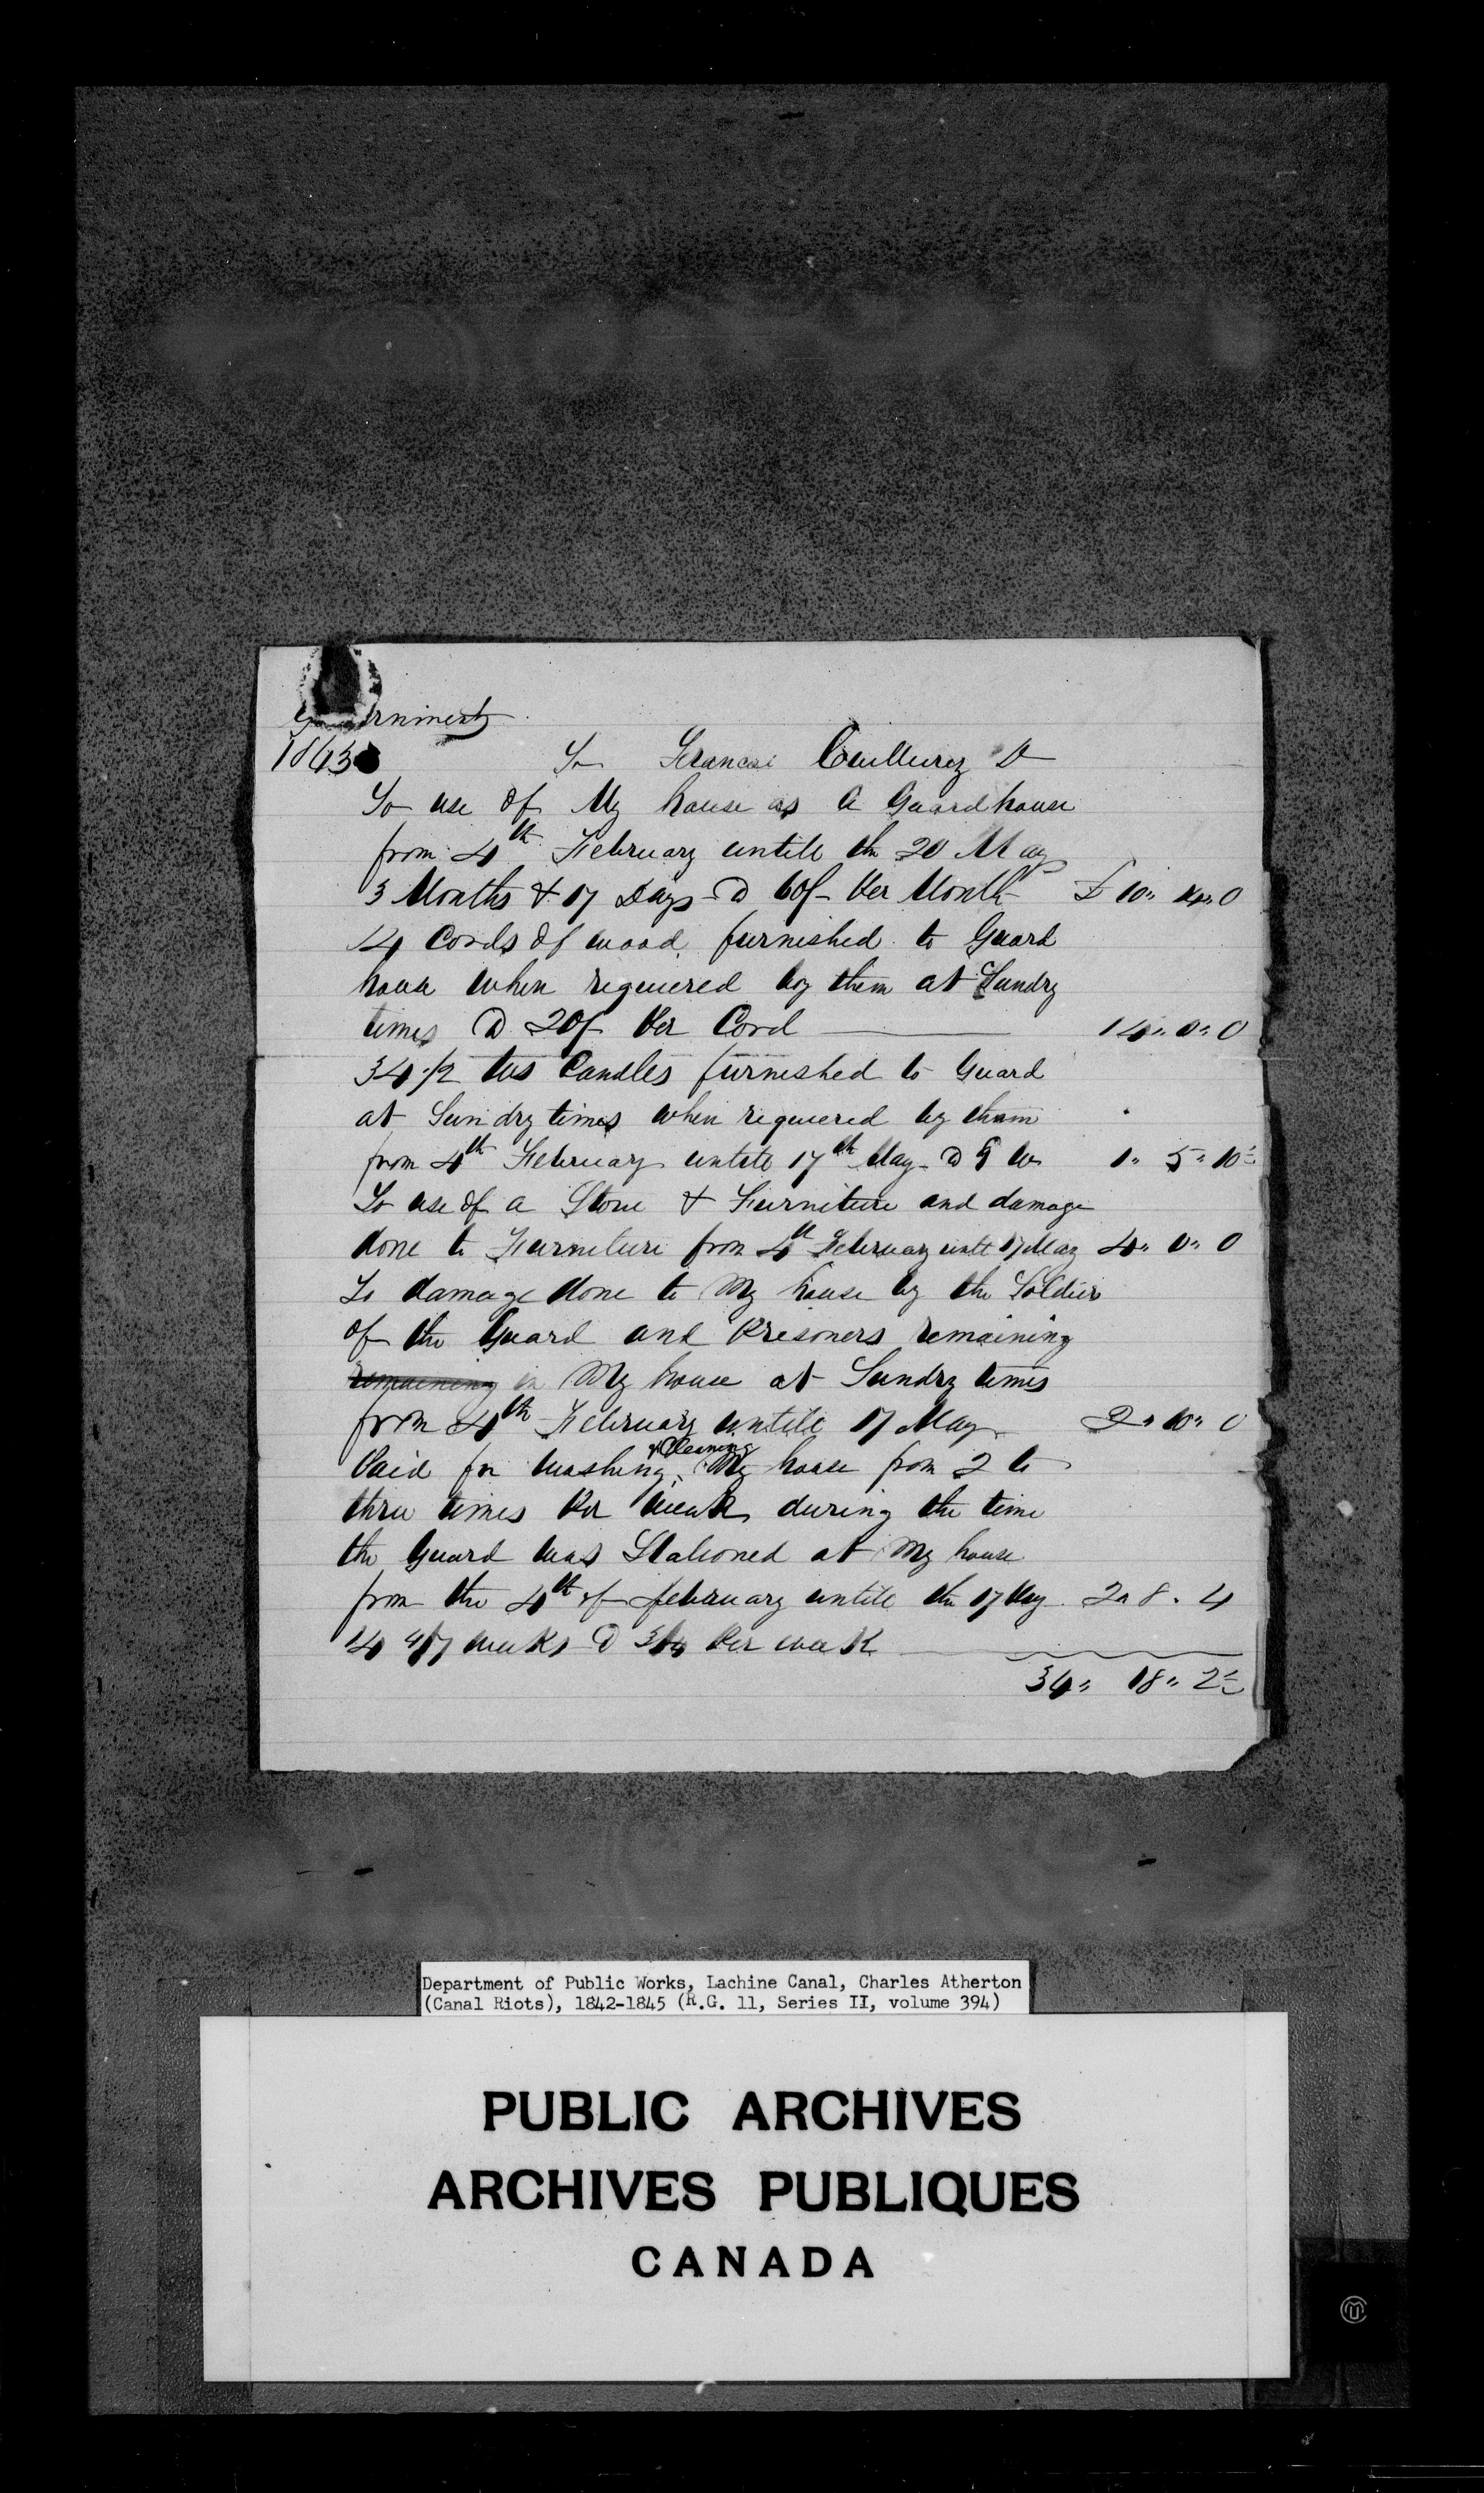 1843
To use of My house as A Guardhouse
from 4th February untill the 20 May
3 Months & 17 Days @ 60/- Per Month £ 10" 14" 0
14 Cords of wood furnished to Guard
house when requiered by them at Sundry
times @ 20/- Per Cord 14" 0" 0
34 1/2 lbs Candles furnished to Guard
at Sundry times when requiered by them
from 4th February untill 17th May @ 9 1" 5" 10
To use of a Stove & Furniture and damage
done to Furniture from 4th February untl 17 May 4" 0" 0
To damage done to My house by the Soldiers
of the Guard and Presoners remaining
remaining in My house at Sundry times
from 4th February untill 17 May 2" 10" 0
Paid for Washing & Cleaning My house from 2 to
three times Per Week during the time
the Guard was Stationed at My house
from the 4th of february untill the 17 May 2" 8" 4
14 4/7 weeks @ 3/4 Per week
34" 18" 2
Department of Public Works, Lachine Canal, Charles Atherton
(Canal Riots), 1842-1845 (R.G. 11, Series II, volume 394)
PUBLIC ARCHIVES
ARCHIVES PUBLIQUES
CANADA